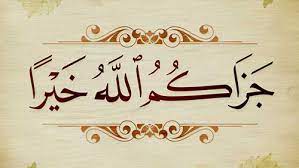 جَزَاكُمُ ٱللَّهُ خَيْرًا